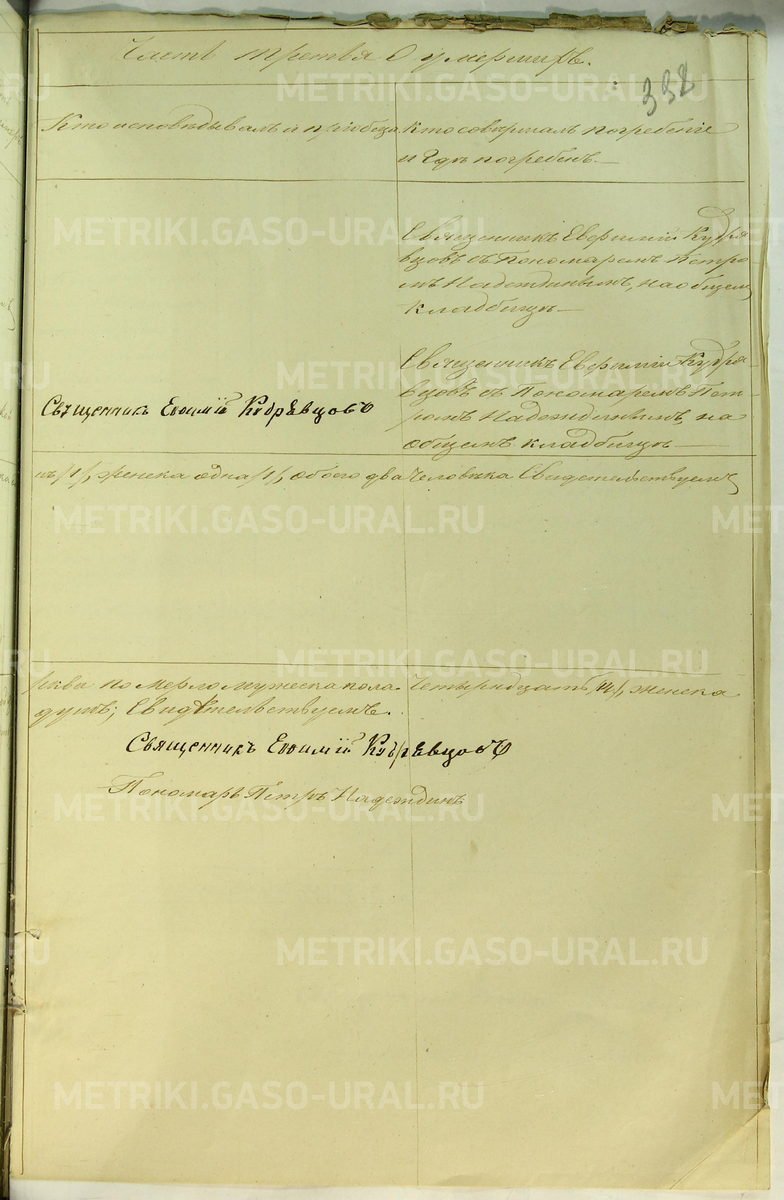 Часть третья О умершихъ.
338
Кто исповѣдывалъ и пріобща
Кто совершалъ погребеніе
и гдѣ погребенъ.
Священникъ Евфимій Кудря
вцовъ съ Пономаремъ Петро
мъ Надеждинымъ, на общемъ
кладбищѣ
Священникъ Евфимій Кудря
вцовъ съ Пономаремъ Пет
ромъ Надеждинымъ, на
общемъ кладбищѣ
Священникъ Евѳимій Кудрявцовъ
нъ /1/, женска одна /1/, обоего два человѣка Свидетельствуемъ
рква померло мужеска пола четырнадцать /14/, женска
душъ; Свидѣтельствуемъ.
Священникъ Евѳимій Кудрявцовъ
Пономарь Петръ Надеждинъ
METRIKI.GASO-URAL.RU